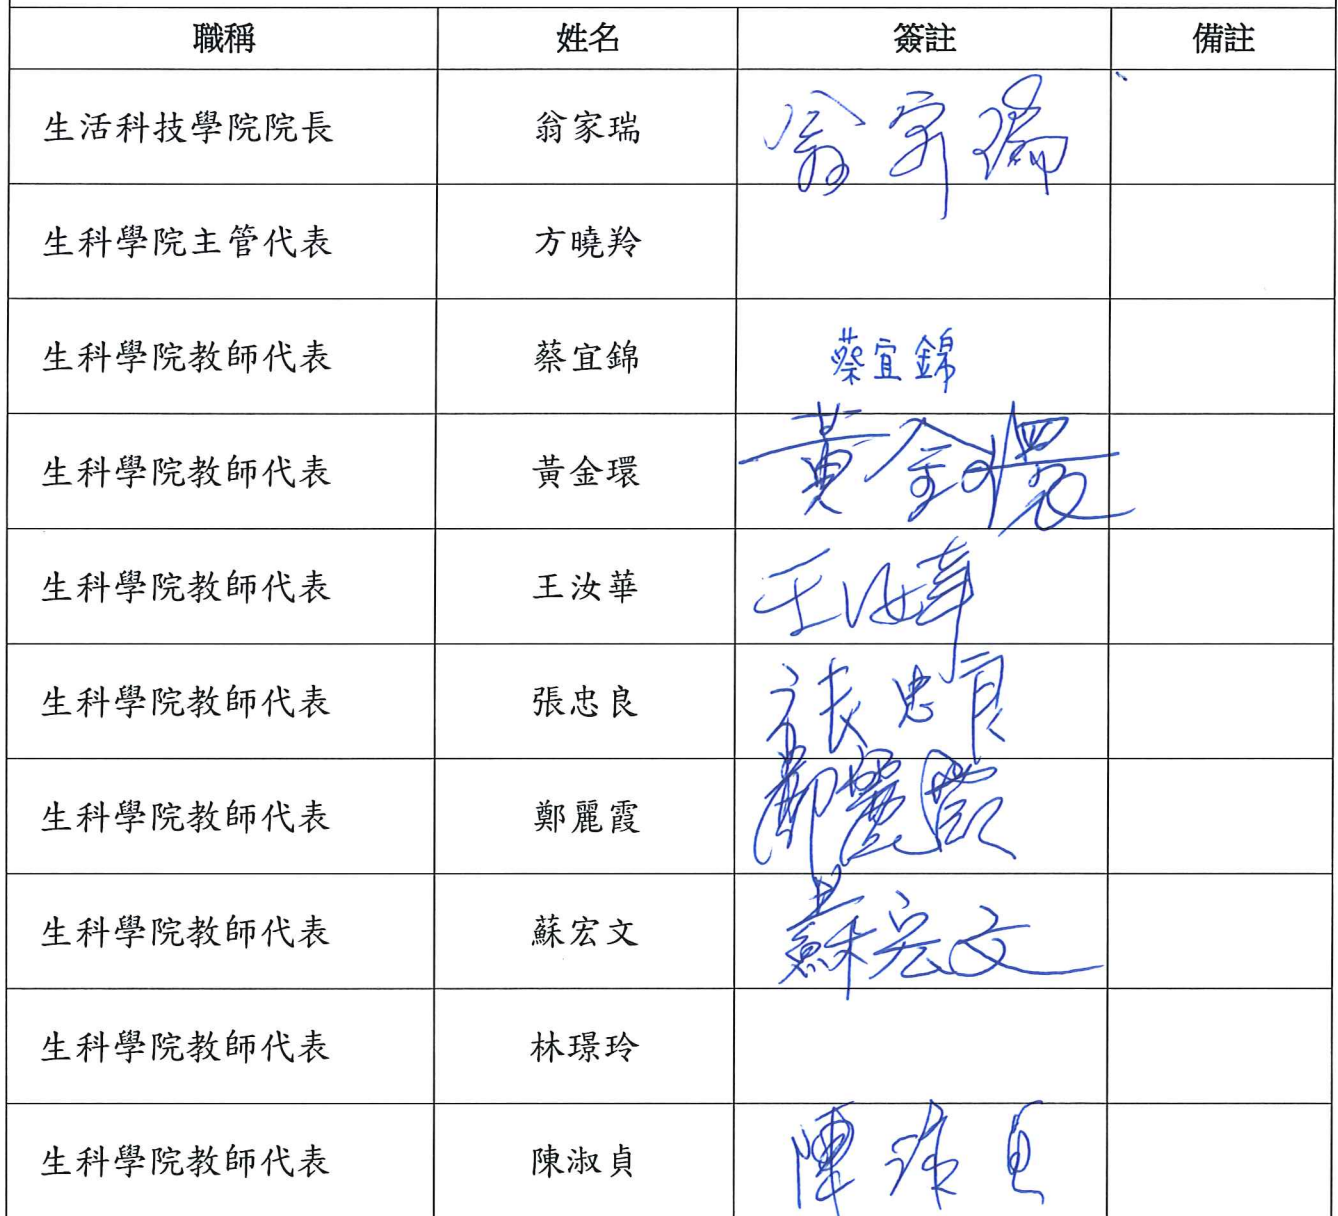 職稱 姓名 簽註 備註
生活科技學院院長 翁家瑞 翁家瑞
生科學院主管代表 方曉羚
生科學院教師代表 蔡宜錦 蔡宜錦
生科學院教師代表 黃金環 黃金環
生科學院教師代表 王汝華 王汝華
生科學院教師代表 張忠良 張忠良
生科學院教師代表 鄭麗霞 鄭麗霞
生科學院教師代表 蘇宏文 蘇宏文
生科學院教師代表 林璟玲
生科學院教師代表 陳淑貞 陳淑貞